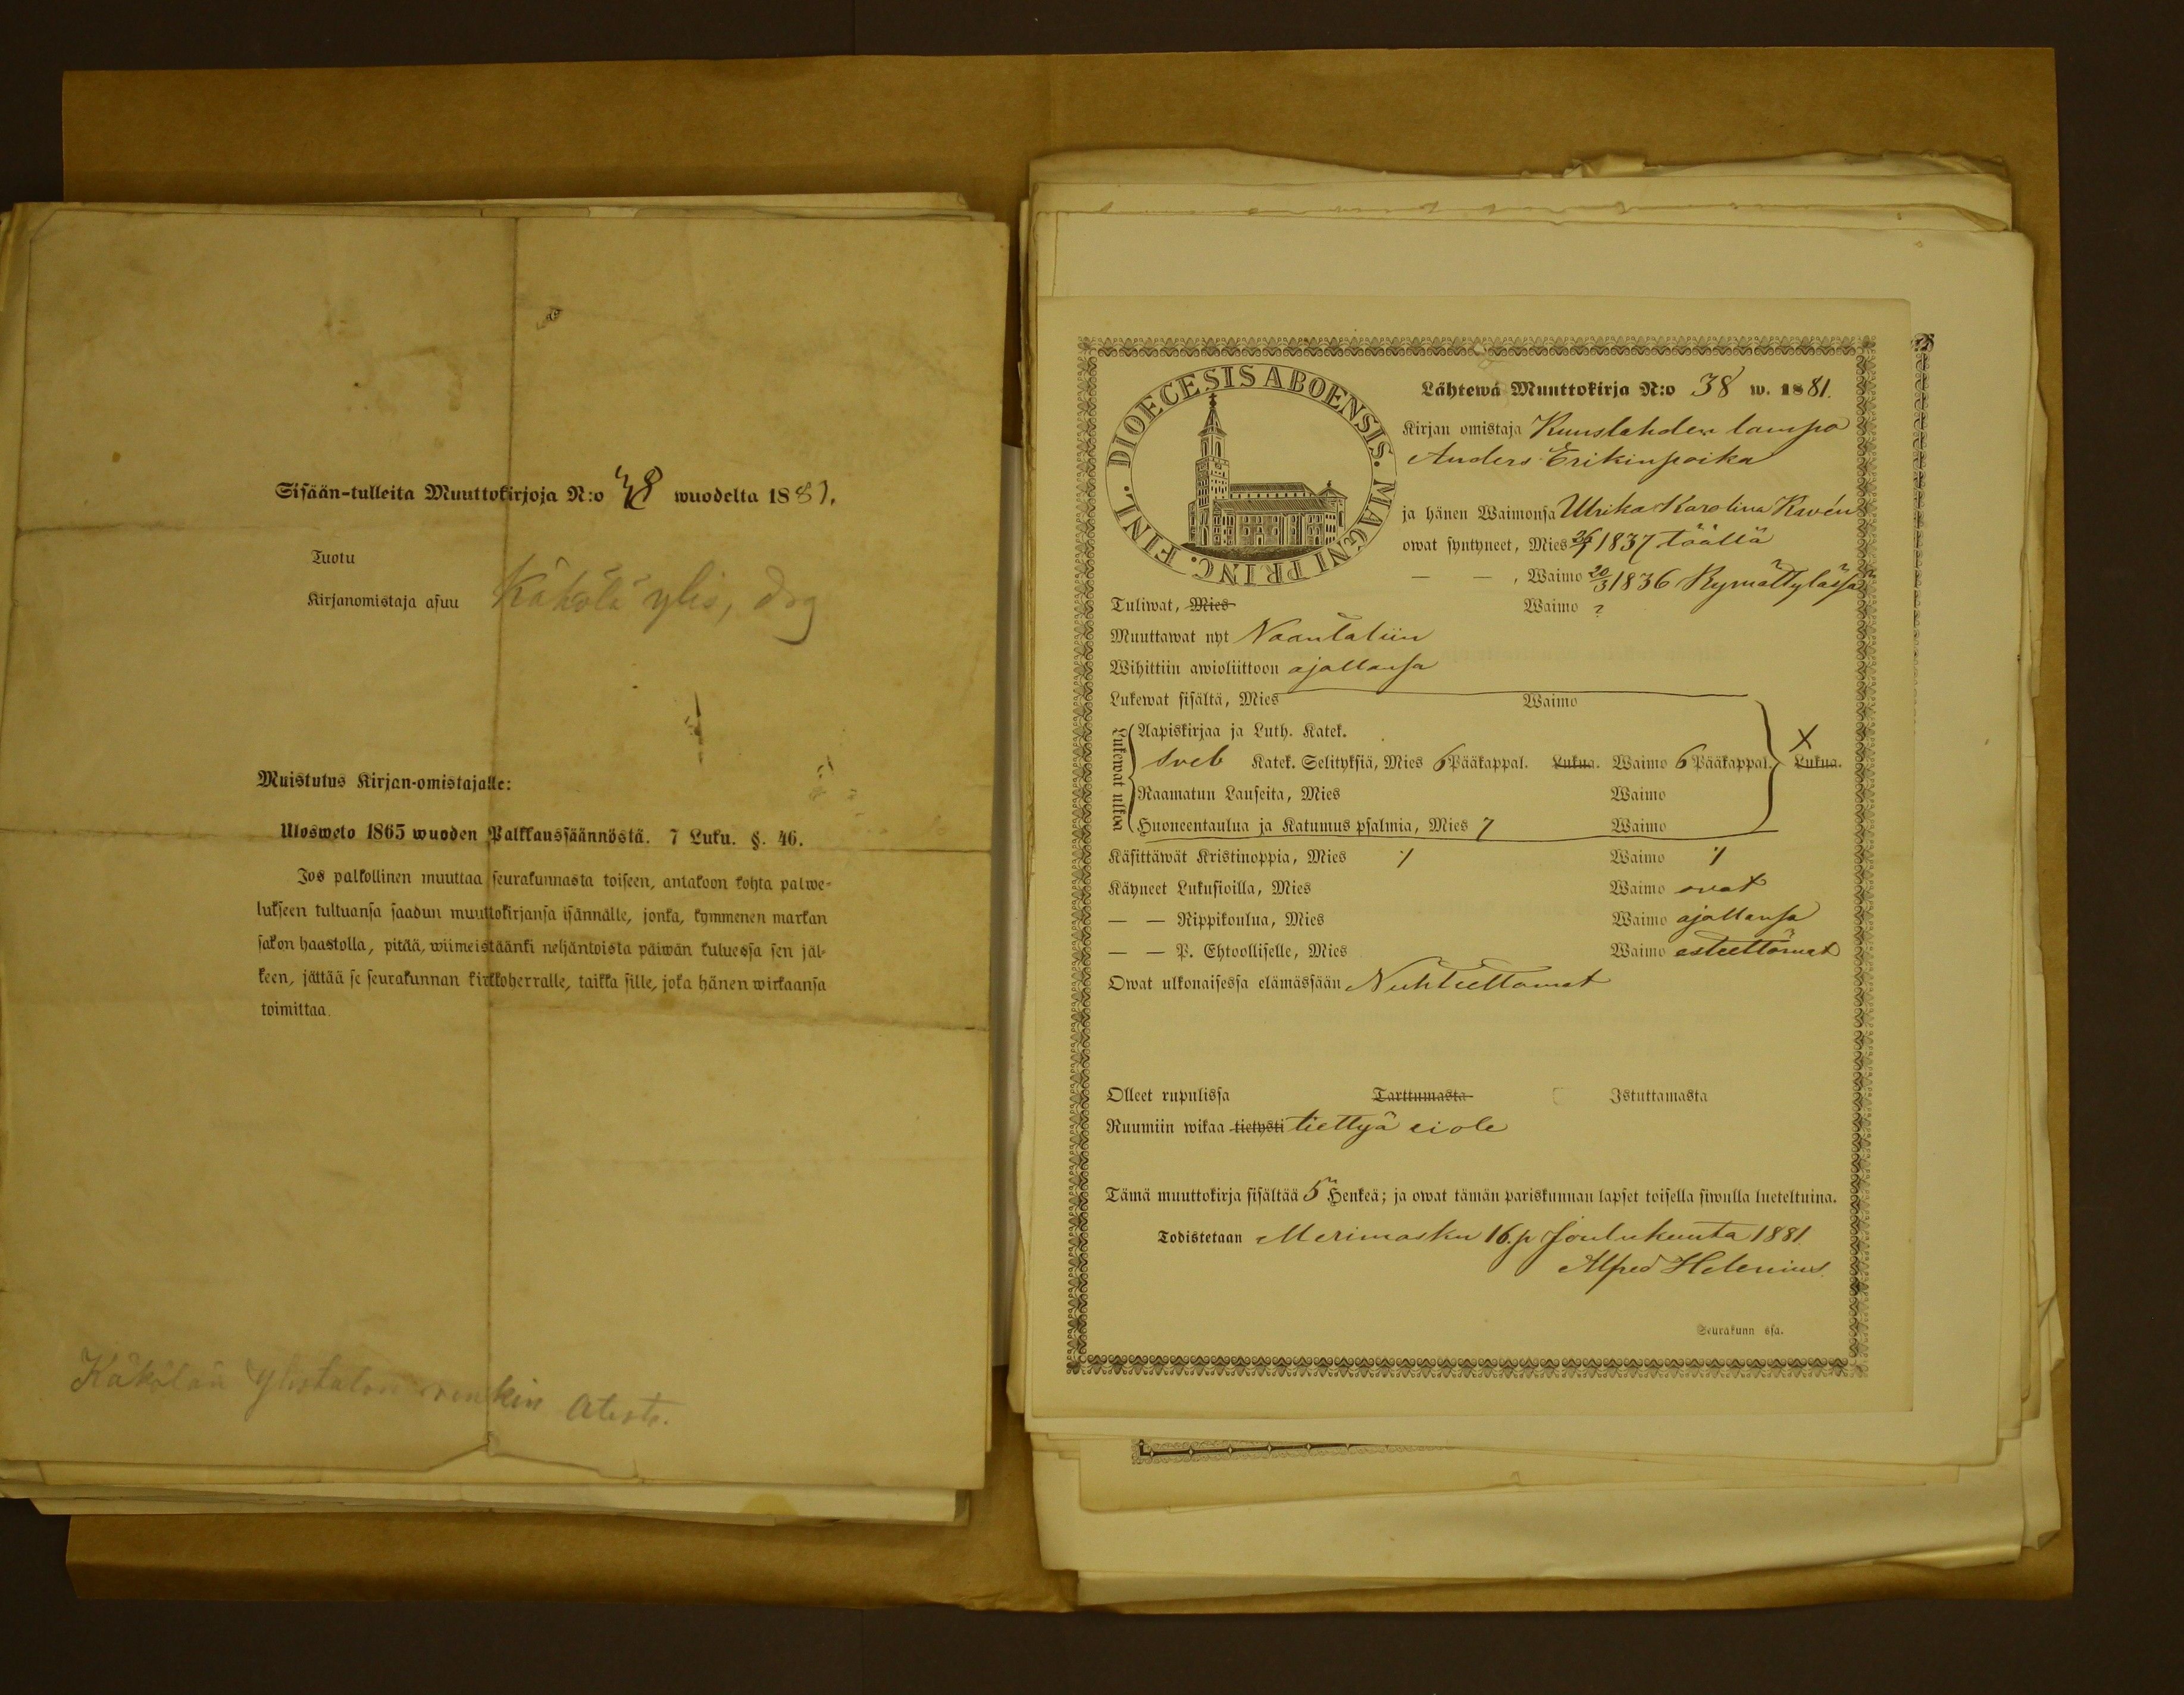 Sisään-tulleita Muuttokirjoja N:o 38 wuodelta 1881.
Tuotu
Kirjanomistaja asuu Käkölä ylis, drg
Muistutus Kirjan-omistajalle:
Ulosweto 1865 wuoden Palkkaussäännöstä. 7 Luku. §. 46.
Jos palkollinen muuttaa seurakunnasta toiseen, antakoon kohta palwe-
lukseen tultuansa saadun muuttokirjansa isännälle, jonka, kymmenen markan
sakon haastolla, pitää, wiimeistäänki neljäntoista päiwän kuluessa sen jäl-
keen, jättää se seurakunnan kirkkoherralle, taikka sille, joka hänen wirkaansa
toimittaa.
Käkölän Ylistalon renkin atest.
DIOECESIS ABOENSIS. MAGNI PRINC. FINL.
Lähtewä Muuttokirja N:o 38 w. 1881.
Kirjan omistaja Kuuslahden lampo
Anders Erikinpoika
ja hänen Waimonsa Ulrika Karolina Kavén
owat syntyneet, Mies 1837 täällä
— — , Waimo 20/3 1836 Rymättylässä
Tuliwat, Mies Waimo ?
Muuttawat nyt Naantaliin
Wihittiin awioliittoon ajallansa
Lukewat sisältä, Mies Waimo
Lukewat ulkoa
Aapiskirjaa ja Luth. Katek.
sveb Katek. Selityksiä, Mies 6 Pääkappal. Lukua. Waimo 6 Pääkappal. Lukua. X
Raamatun Lauseita, Mies Waimo
Huoneentaulua ja Katumus psalmia, Mies 7 Waimo
Käsittäwät Kristinoppia, Mies Waimo
Käyneet Lukusioilla, Mies Waimo ovat
— — Rippikoulua, Mies Waimo ajallansa
— — P. Ehtoolliselle, Mies Waimo esteettömät
Owat ulkonaisessa elämässään Nuhteettomat
Olleet rupulissa Tarttumasta Istuttamasta
Ruumiin wikaa tietysti tiettyä ei ole
Tämä muuttokirja sisältää 5 Henkeä; ja owat tämän pariskunnan lapset toisella siwulla lueteltuina.
Todistetaan Merimasku 16.p Joulukuuta 1881.
Alfred Helenius
Seurakunn ssa.